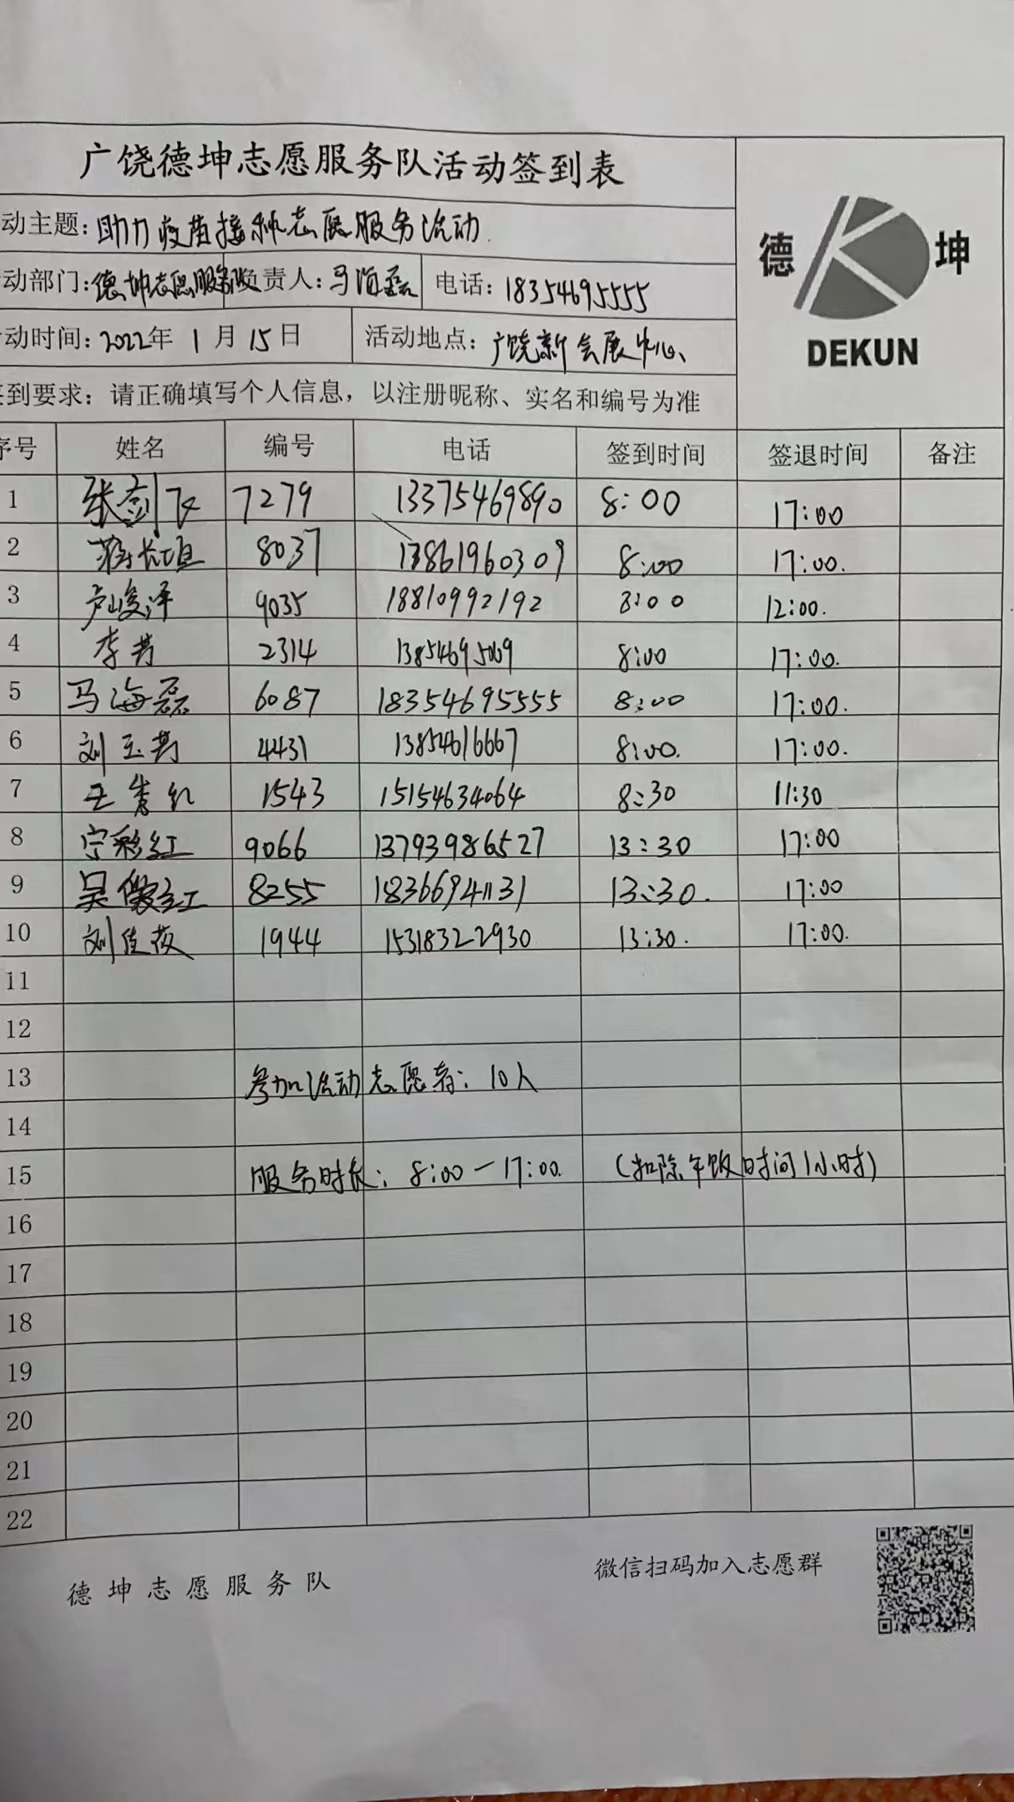 广饶德坤志愿服务队活动签到表
德 坤
DEKUN
动主题：助力疫苗接种志愿服务活动
动部门：德坤志愿服务队 负责人：马海磊 电话：18354695555
动时间：2022年 1月 15日 活动地点：广饶新会展中心
到要求：请正确填写个人信息，以注册昵称、实名和编号为准
序号 姓名 编号 电话 签到时间 签退时间 备注
1 张剑飞 7279 13375469890 8:00 17:00
2 8037 13861960309 8:00 17:00.
3 卢峻泽 9035 18810992192 8:00 12:00.
4 李芳 2314 13854695069 8:00 17:00.
5 马海磊 6087 18354695555 8:00 17:00.
6 刘玉芳 4431 13854616667 8:00. 17:00.
7 王秀红 1543 15154634064 8:30 11:30
8 宁彩红 9066 13793986527 13:30 17:00
9 吴 红 8255 18366941131 13:30. 17:00
10 刘佳 1944 15318322930 13:30. 17:00.
11
12
13 参加活动志愿者：10人
14
15 服务时长：8:00－17:00. （扣除午饭时间1小时）
16
17
18
19
20
21
22
德坤志愿服务队 微信扫码加入志愿群